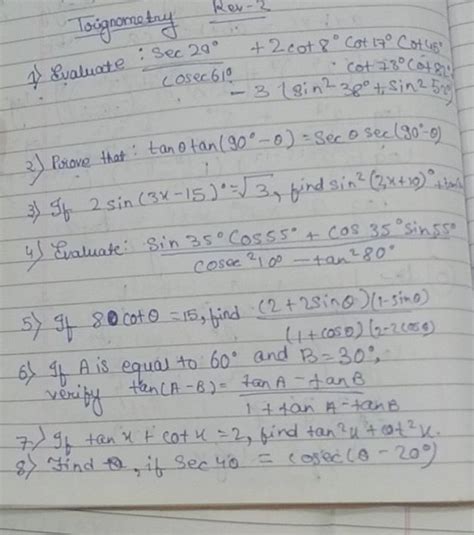 Toignometry Rev-2
1) Evaluate : sec 29° / cosec 61° + 2 cot 8° cot 17° cot 45°
cot 73° cot 82°
- 3 (sin² 38° + sin² 52°)
2) Prove that : tan θ tan (90° - θ) = sec θ sec (90° - θ)
3) If 2 sin (3x - 15)° = √3, find sin² (2x + 10)° +
4) Evaluate: sin 35° cos 55° + cos 35° sin 55°
cosec² 10° - tan² 80°
5) If 8 cot θ = 15, find (2 + 2 sin θ) (1 - sin θ)
(1 + cos θ) (2 - 2 cos θ)
6) If A is equal to 60° and B = 30°,
verify tan (A - B) = tan A - tan B
1 + tan A - tan B
7) If tan x + cot x = 2, find tan² x + cot² x.
8) Find θ, if sec 4θ = cosec (θ - 20°)